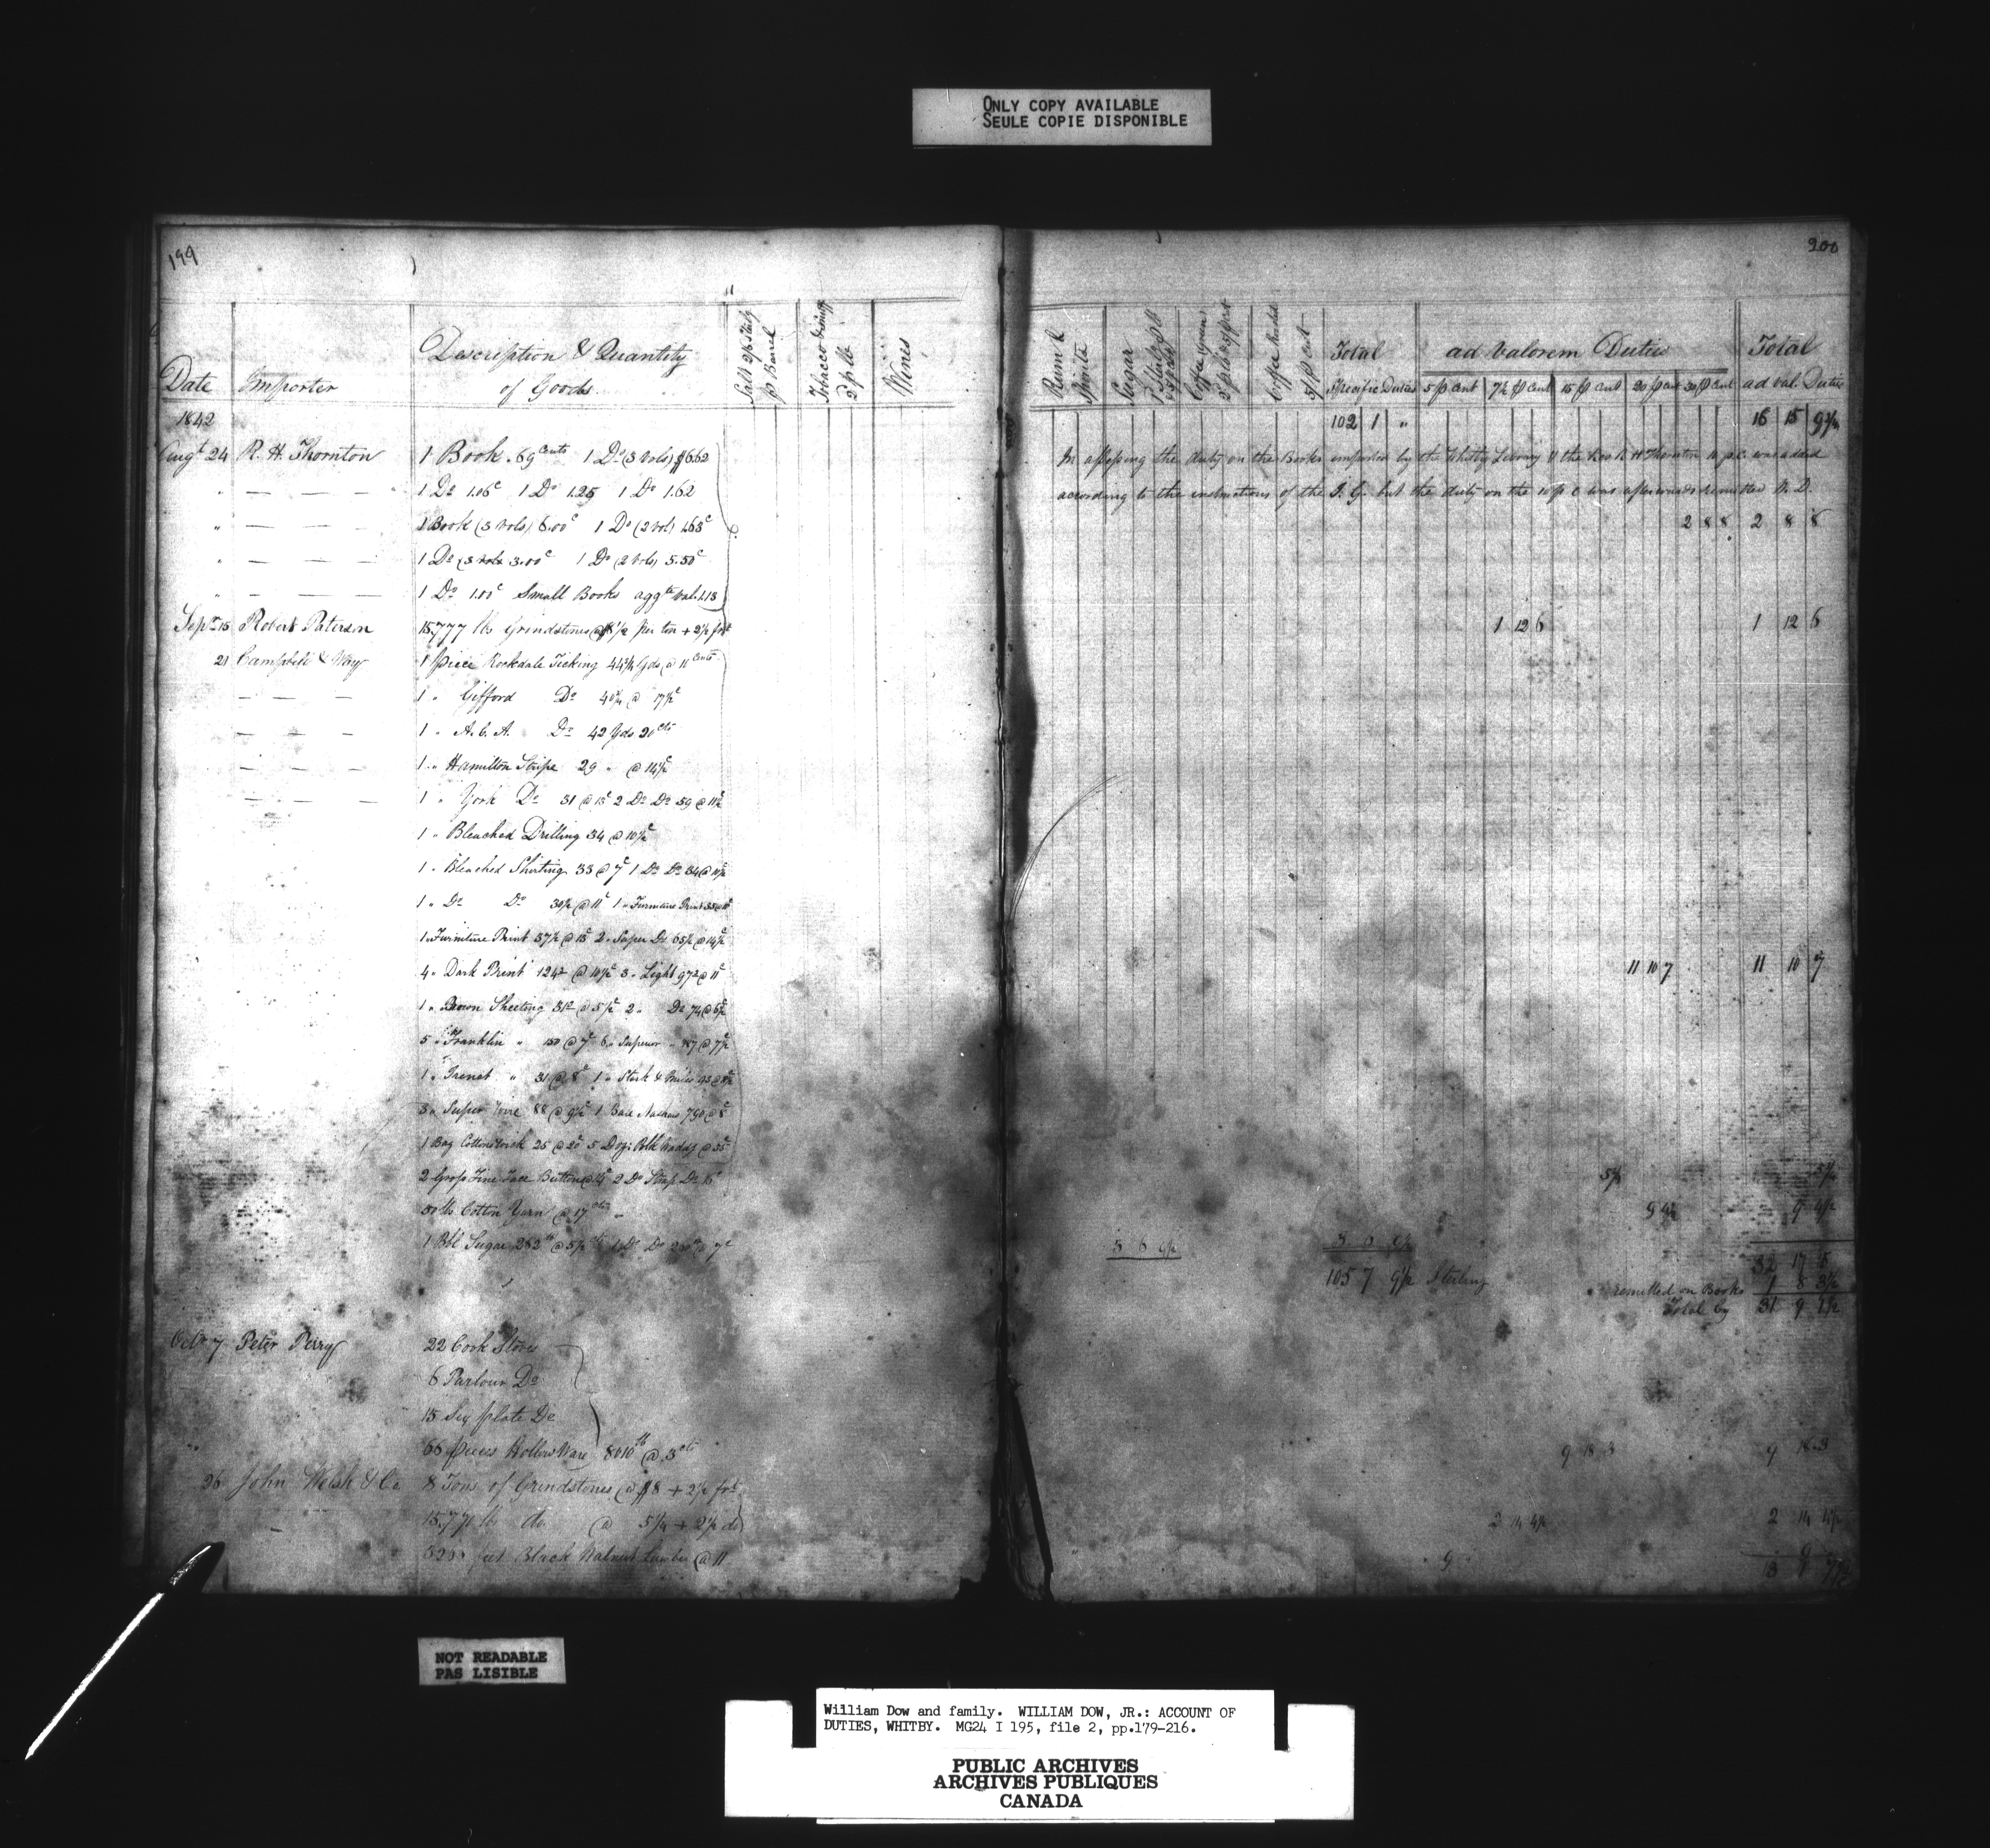 ONLY COPY AVAILABLE
SEULE COPIE DISPONIBLE
199
Date
Importer
Description & Quantity
of Goods
Salt 2/6 Stlg
p Barrel
Tobacco & Snuff
2d p lb
Wines
1842
Augt 24 R. H. Thornton 1 Book .69 Cents 1 Do (3 vols) $6.62
" — — — 1 Do 1.06c 1 Do 1.25 1 Do 1.62
" — — — 1 Book (3 vols) 6.00c 1 Do (2 vol) 1.63c
" — — — 1 Do (3 vols 3.00c 1 Do (2 vols) 5.50c
" — — — 1 Do 1.00c Small Books aggte val. 1.13
Sept 15 Robert Paterson 15,777 lbs Grindstones per ton + 2½ frt
21 Campbell & Way 1 piece Rockdale Ticking 44¾ Yds @ 11 Cents
— — — 1 " Gifford Do @ 17½c
— — — 1 " A. C. A. Do 42 Yds 20 cts
— — — 1 " Hamilton Stripe 29 " @ 14½c
— — — 1 " York Do 31 @ 13c 2 Do Do 59 @ 11½c
1 " Bleached Drilling 34 @ 10½c
1 " Bleached Shirting 33 @ 7c 1 Do Do 34 @
1 " Do Do 30½ @ 11c 1 " Furniture Print
1 " Furniture Print 37½ @ 13c 2 " Super Do 65½ @ 14½c
4 " Dark Print 124² @ 10½c 3 " Light 97² @ 11c
1 " Brown Sheeting @ 5½c 2 " Do 74 @ 6½c
5 " Franklin " 150 @ 7c 6 " Superior " 187 @ 7½c
1 " " 31 @ 8c 1 " Stark
3 " Super 88 @ 9½c 1 Bale 750 @ 8c
1 Bag Cotton wick 25 @ 20c 5 Doz: Blk @ 35c
2 Gross Fine Buttons 2 Do Do
50 lb Cotton Yarn @ 17 cts
1 Bbl Sugar 282 lb @ 5½ 1 Do Do @ 7c
Octr 7 Peter Perry 22 Cook Stoves
6 Parlour Do
15 Six plate Do
66 pieces Hollow Ware 8010 lb @ 3 cts
26 John Welsh & Co. 8 Tons of Grindstones @ $8 + 2½ frt
do @ 5¼ + 2½ do
feet Black Walnut Lumber @ 11
200
Rum &
Spirits
Sugar
Coffee green
Coffee
5 p cent
Total
Specific Duties
ad Valorem Duties
5 p Cent 7½ p Cent 15 p Cent 20 p Cent 30 p Cent
Total
ad val. Duties
102 1 " 16 15 9¾
In assessing the duty on the Books imported by the Whitby Library & the Rev R H Thornton 10 p.c. was added
according to the instructions of the I. G. but the duty on the 10 p c was afterwards remitted W. D.
2 8 8 2 8 8
1 12 6 1 12 6
11 10 7 11 10 7
9 4½ 9 4½
3 6 9½ 3 6 9½
105 7 9½ Sterling
32 17 5
remitted on Books 1 8 3½
Total Cy 31 9 1½
9 18 3 9 18 3
2 14 4½ 2 14 4½
NOT READABLE
PAS LISIBLE
William Dow and family. WILLIAM DOW, JR.: ACCOUNT OF
DUTIES, WHITBY. MG24 I 195, file 2, pp.179-216.
PUBLIC ARCHIVES
ARCHIVES PUBLIQUES
CANADA